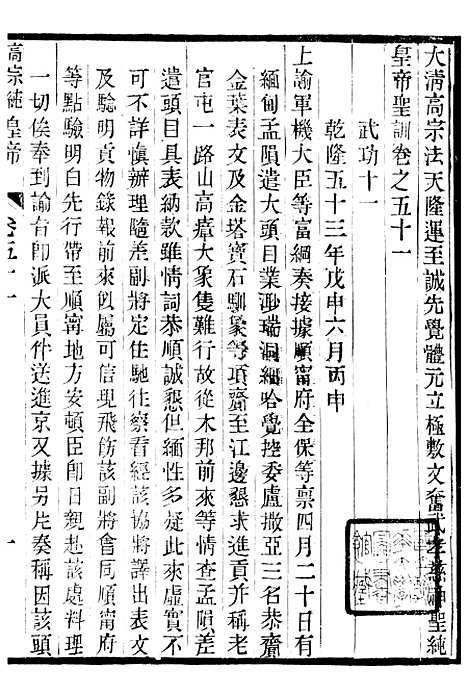 大淸高宗法天隆運至誠先覺體元立極敷文奮武孝慈神聖純
皇帝聖訓卷之五十一
武功十一
乾隆五十三年戊申六月丙申
上諭軍機大臣等富綱奏接據順甯府全保等稟四月二十日有
緬甸孟隕遣大頭目業渺瑞洞細哈覺控委盧撒亞三名恭齎
金葉表文及金塔寶石馴象等項齎至江邊懇求進貢并稱老
官屯一路山高瘴大象隻難行故從木邦前來等情查孟隕差
遣頭目具表納款雖情詞恭順誠懇但緬性多疑此來虛實不
可不詳愼辦理隨差副將定住馳往察看經該協將譯出表文
及驗明貢物錄報前來旣屬可信現飛飭該副將會同順甯府
等點驗明白先行帶至順甯地方安頓臣卽日親赴該處料理
一切俟奉到諭旨卽派大員伴送進京又據另片奏稱因該頭
高宗純皇帝 卷五十一 一